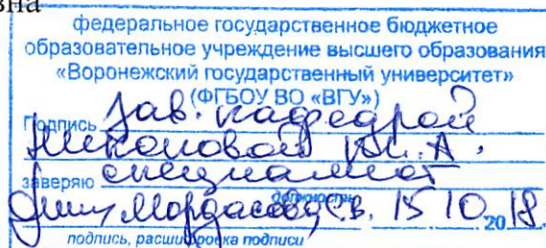 вна
федеральное государственное бюджетное
образовательное учреждение высшего образования
«Воронежский государственный университет»
(ФГБОУ ВО «ВГУ»)
Подпись зав. кафедрой
заверяю специалист
должность
15 10 20 18.
подпись, расшифровка подписи